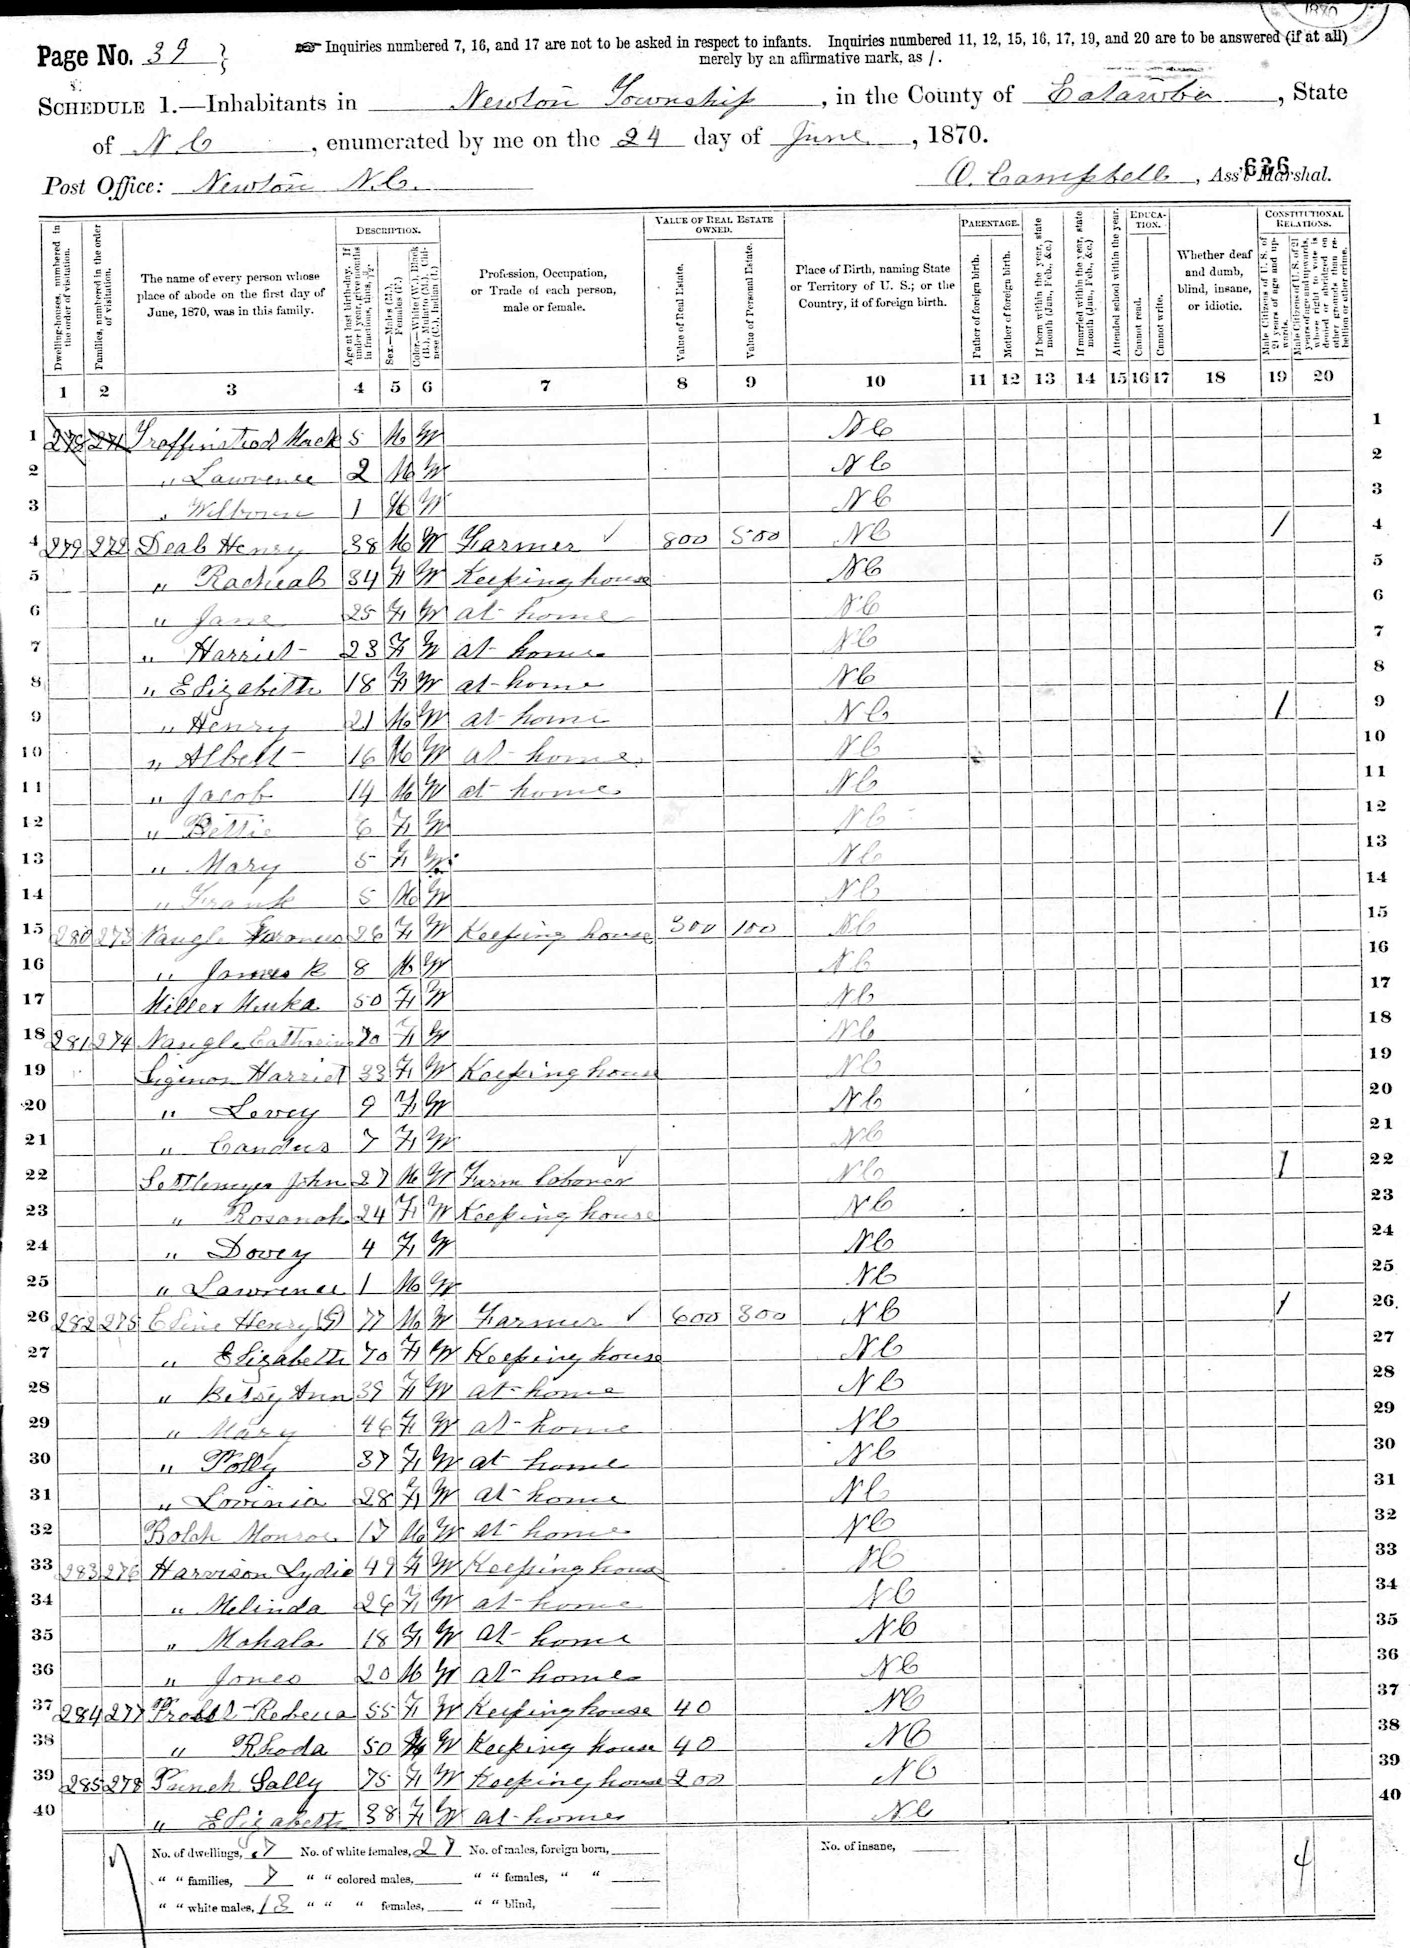 1870
Page No. 39
Inquiries numbered 7, 16, and 17 are not to be asked in respect to infants. Inquiries numbered 11, 12, 15, 16, 17, 19, and 20 are to be answered (if at all)
merely by an affirmative mark, as /.
SCHEDULE 1.—Inhabitants in Newton Township, in the County of Catawba, State
of N C, enumerated by me on the 24 day of June, 1870.
626
Post Office: Newton N.C. O. Campbell, Ass't Marshal.
Dwelling-houses, numbered in the order of visitation.
Families, numbered in the order of visitation.
The name of every person whose place of abode on the first day of June, 1870, was in this family.
DESCRIPTION.
Age at last birth-day. If under 1 year, give months in fractions, thus, 3/12.
Sex.—Males (M.), Females (F.)
Color.—White (W.), Black (B.), Mulatto (M.), Chinese (C.), Indian (I.)
Profession, Occupation, or Trade of each person, male or female.
VALUE OF REAL ESTATE OWNED.
Value of Real Estate.
Value of Personal Estate.
Place of Birth, naming State or Territory of U. S.; or the Country, if of foreign birth.
PARENTAGE.
Father of foreign birth.
Mother of foreign birth.
If born within the year, state month (Jan., Feb., &c.)
If married within the year, state month (Jan., Feb., &c.)
Attended school within the year.
EDUCATION.
Cannot read.
Cannot write.
Whether deaf and dumb, blind, insane, or idiotic.
CONSTITUTIONAL RELATIONS.
Male Citizens of U. S. of 21 years of age and upwards.
Male Citizens of U. S. of 21 years of age and upwards, whose right to vote is denied or abridged on other grounds than rebellion or other crime.
1 2 3 4 5 6 7 8 9 10 11 12 13 14 15 16 17 18 19 20
1 278 271 Mack 5 M W N C 1
2 " Lawrence 2 M W N C 2
3 " Wilborn 1 M W N C 3
4 279 272 Deal Henry 38 M W Farmer ✓ 800 500 N C / 4
5 " Racheal 34 F W Keeping house N C 5
6 " Jane 25 F W at home N C 6
7 " Harriet 23 F W at home N C 7
8 " Elizabeth 18 F W at home N C 8
9 " Henry 21 M W at home N C / 9
10 " Albert 16 M W at home N C 10
11 " Jacob 14 M W at home N C 11
12 " Bettie 6 F W N C 12
13 " Mary 5 F W N C 13
14 " Frank 5 M W N C 14
15 280 273 Naugle 26 F W Keeping house 300 100 N C 15
16 " James R 8 M W N C 16
17 Miller 50 F W N C 17
18 281 274 Naugle Catherine 70 F W N C 18
19 Sigmon Harriet 33 F W Keeping house N C 19
20 " Lovey 9 F W N C 20
21 " Candus 7 F W N C 21
22 Settlemyer John 27 M W Farm laborer ✓ N C / 22
23 " Rosanah 24 F W Keeping house N C 23
24 " Dovey 4 F W N C 24
25 " Lawrence 1 M W N C 25
26 282 275 Cline Henry (G) 77 M W Farmer ✓ 600 300 N C / 26
27 " Elizabeth 70 F W Keeping house N C 27
28 " Betsy Ann 39 F W at home N C 28
29 " Mary 46 F W at home N C 29
30 " Polly 37 F W at home N C 30
31 " Lovinia 28 F W at home N C 31
32 Bolch Monroe 17 M W at home N C 32
33 283 276 Harvison Lydia 49 F W Keeping house N C 33
34 " Melinda 26 F W at home N C 34
35 " Mahala 18 F W at home N C 35
36 " Jones 20 M W at home N C 36
37 284 277 Probst Rebecca 55 F W Keeping house 40 N C 37
38 " Rhoda 50 W Keeping house 40 N C 38
39 285 278 Punch Sally 75 F W Keeping house 200 N C 39
40 " Elizabeth 38 F W at home N C 40
No. of dwellings, 7 No. of white females, 27 No. of males, foreign born, No. of insane, 4
" " families, 7 " " colored males, " " females, " "
" " white males, 13 " " " females, " " blind,